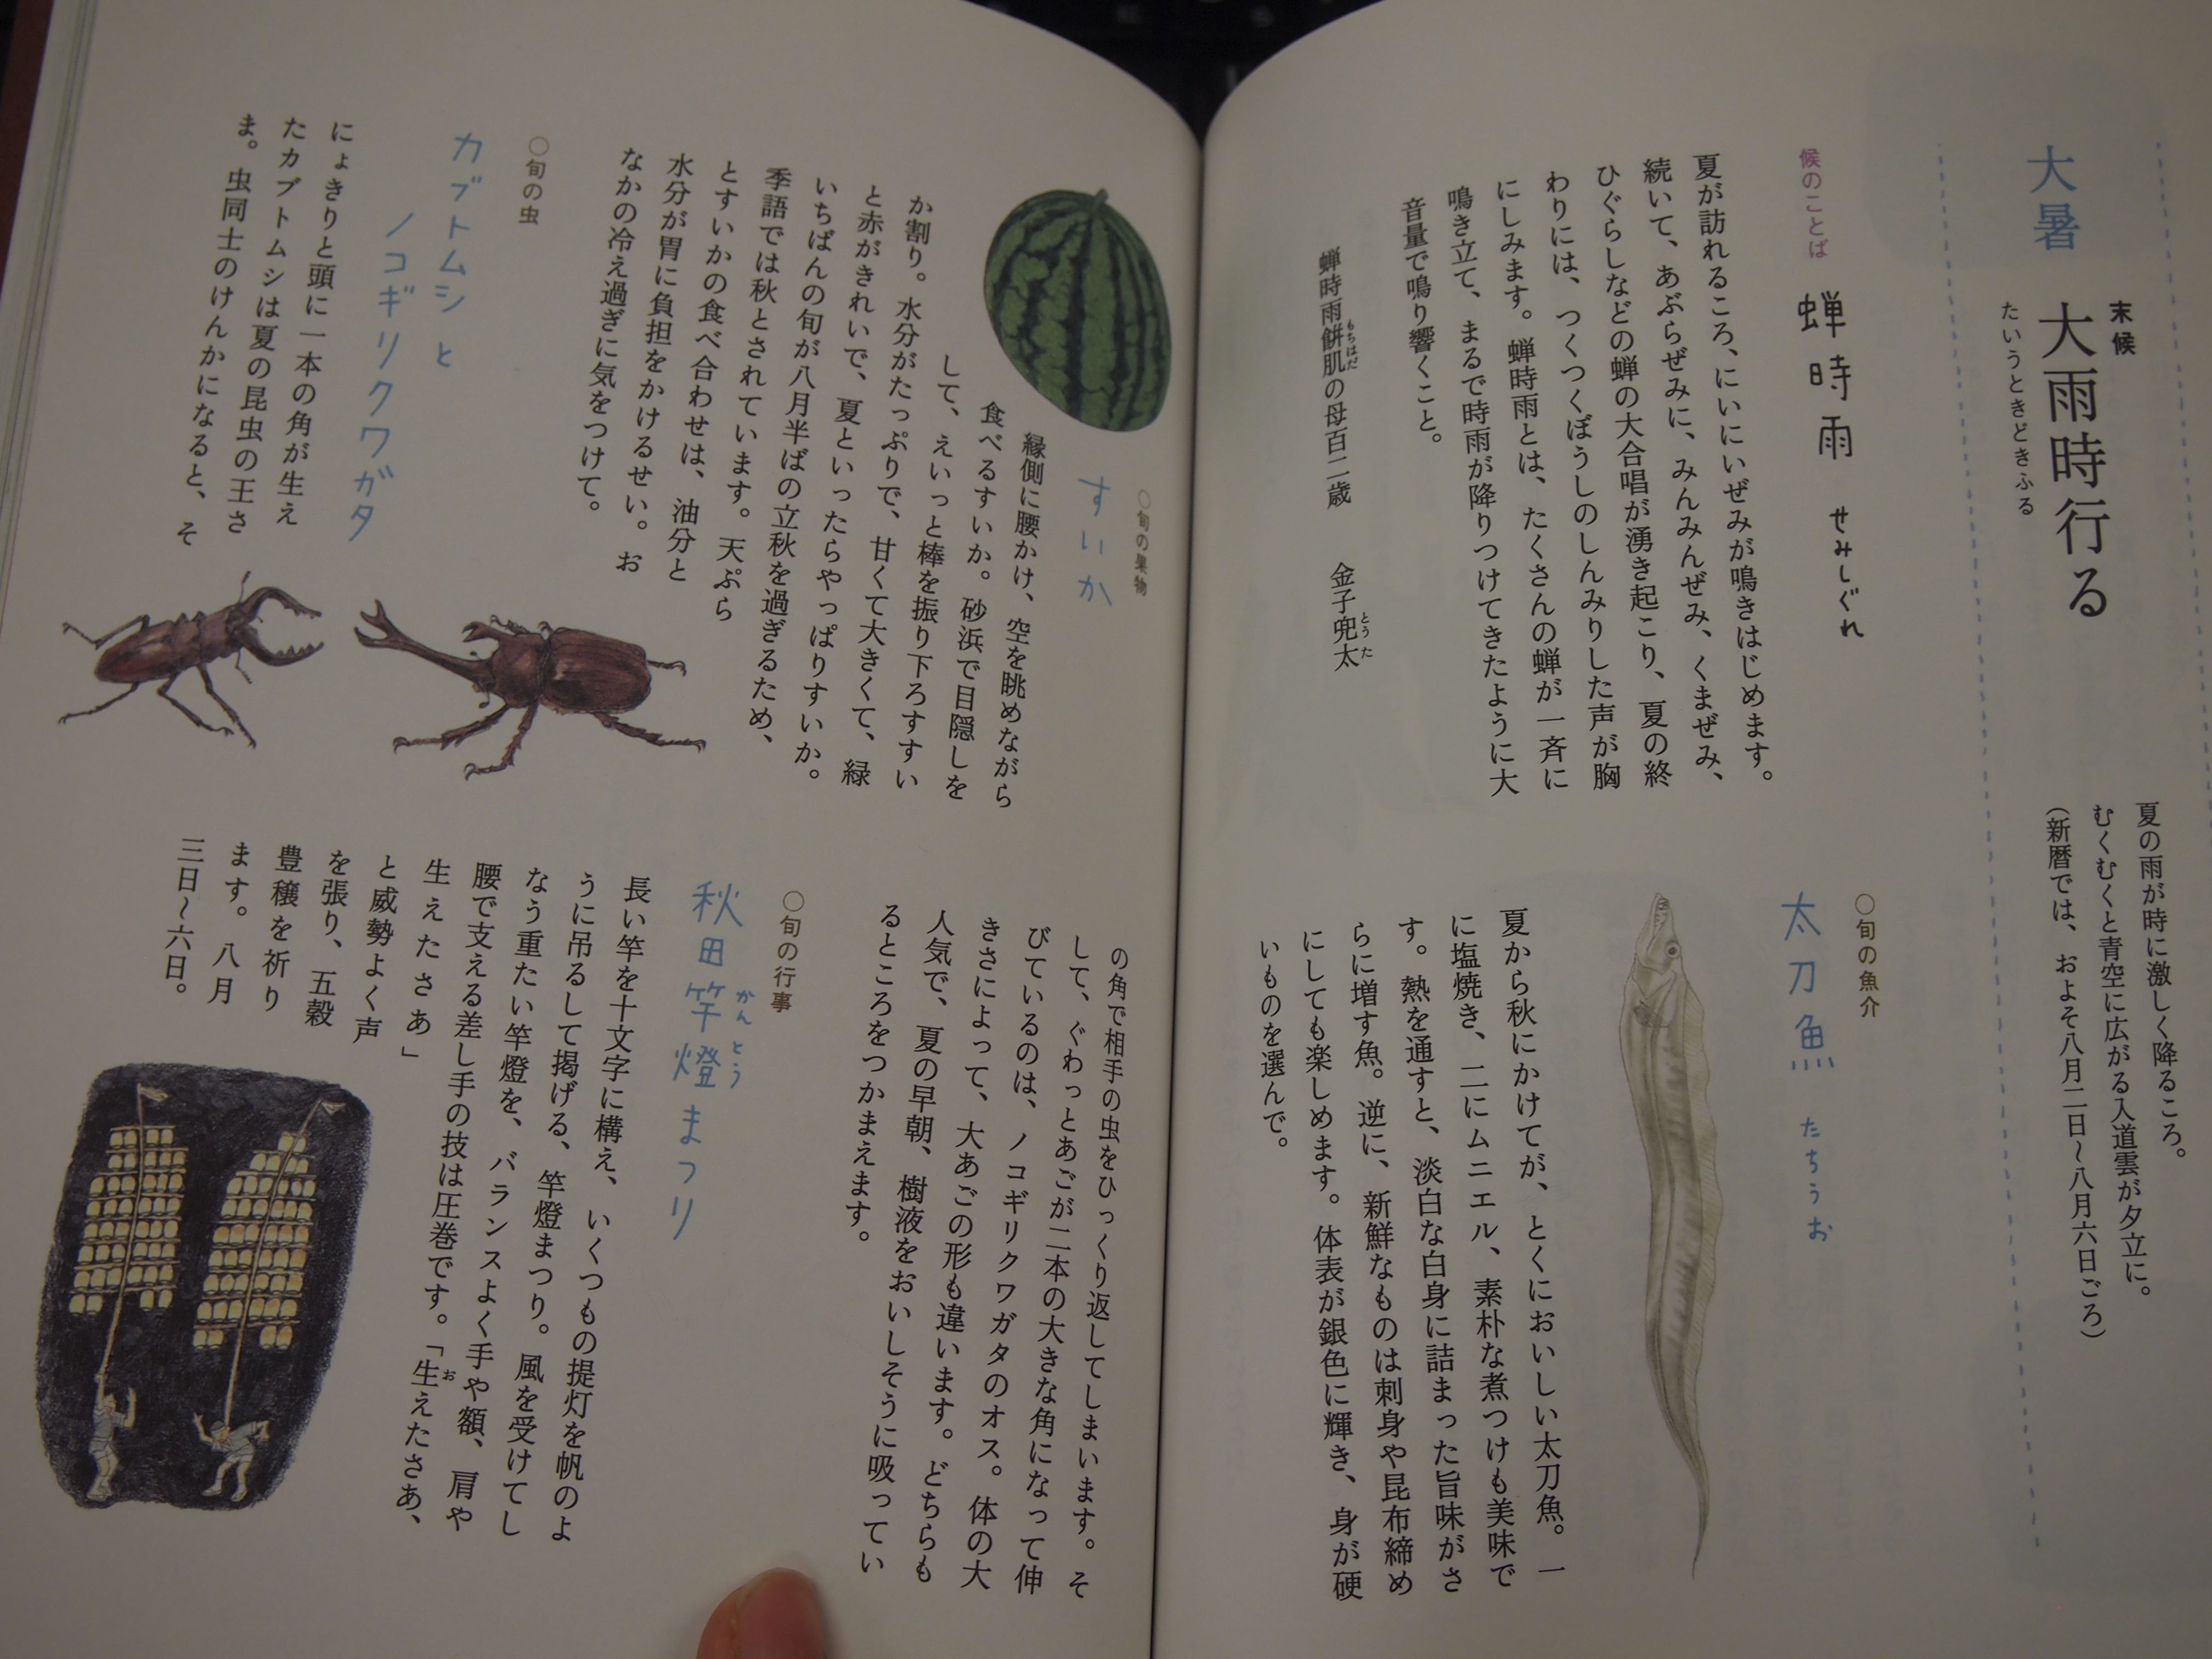 大暑
末候
大雨時行る
たいうときどきふる
夏の雨が時に激しく降るころ。
むくむくと青空に広がる入道雲が夕立に。
(新暦では、およそ八月二日〜八月六日ごろ)
候のことば
蝉時雨 せみしぐれ
夏が訪れるころ、にいにいぜみが鳴きはじめます。
続いて、あぶらぜみに、みんみんぜみ、くまぜみ、
ひぐらしなどの蝉の大合唱が湧き起こり、夏の終
わりには、つくつくぼうしのしんみりした声が胸
にしみます。蝉時雨とは、たくさんの蝉が一斉に
鳴き立て、まるで時雨が降りつけてきたように大
音量で鳴り響くこと。
蝉時雨餅肌の母百二歳 金子兜太
もちはだ
とうた
○旬の魚介
太刀魚 たちうお
夏から秋にかけてが、とくにおいしい太刀魚。一
に塩焼き、二にムニエル、素朴な煮つけも美味で
す。熱を通すと、淡白な白身に詰まった旨味がさ
らに増す魚。逆に、新鮮なものは刺身や昆布締め
にしても楽しめます。体表が銀色に輝き、身が硬
いものを選んで。
○旬の果物
すいか
縁側に腰かけ、空を眺めながら
食べるすいか。砂浜で目隠しを
して、えいっと棒を振り下ろすすい
か割り。水分がたっぷりで、甘くて大きくて、緑
と赤がきれいで、夏といったらやっぱりすいか。
いちばんの旬が八月半ばの立秋を過ぎるため、
季語では秋とされています。天ぷら
とすいかの食べ合わせは、油分と
水分が胃に負担をかけるせい。お
なかの冷え過ぎに気をつけて。
○旬の虫
カブトムシと
ノコギリクワガタ
にょきりと頭に一本の角が生え
たカブトムシは夏の昆虫の王さ
ま。虫同士のけんかになると、そ
の角で相手の虫をひっくり返してしまいます。そ
して、ぐわっとあごが二本の大きな角になって伸
びているのは、ノコギリクワガタのオス。体の大
きさによって、大あごの形も違います。どちらも
人気で、夏の早朝、樹液をおいしそうに吸ってい
るところをつかまえます。
○旬の行事
秋田竿燈まつり
かんとう
長い竿を十文字に構え、いくつもの提灯を帆のよ
うに吊るして掲げる、竿燈まつり。風を受けてし
なう重たい竿燈を、バランスよく手や額、肩や
腰で支える差し手の技は圧巻です。「生えたさあ、
お
生えたさあ」
と威勢よく声
を張り、五穀
豊穣を祈り
ます。八月
三日〜六日。